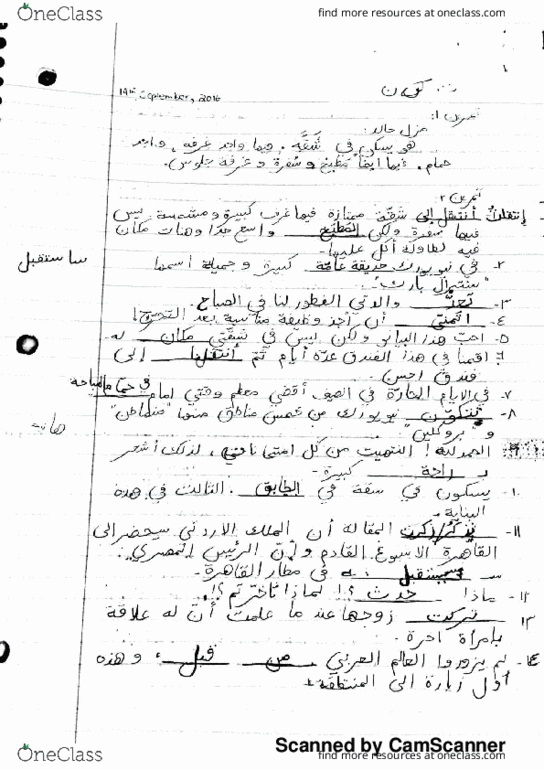 OneClass
find more resources at oneclass.com
19th September, 2016
تمرين ١:
منزل خالد:
هو يسكن في شقة. فيها واحد غرفه، واحد
حمام. فيها ايضاً مطبخ و سفرة و غرفة جلوس.
تمرين ٢
إنتقلت أنتقل إلى شقة ممتازة فيها غرف كبيرة و مشمسة ليس
فيها سفرة ولكن المطبخ واسع جدا وهناك مكان
فيه لطاولة أكل عليها.
سأستقبل
٢. في نيويورك حديقة عامة كبيرة و جميلة اسمها
"سنترال بارك".
٣. تعدّ والدتي الفطور لنا في الصباح.
٤. أتمنى أن أجد وظيفة مناسبة بعد التخرج!
٥. احب هذا البيانو ولكن ليس في شقتي مكان له
٦. اقمنا في هذا الفندق عدّة أيام ثم انتقلنا إلى
فندق احسن.
٧. في الايام الحارّة في الصيف أقضي معظم وقتي امام
في حمام السباحة
٨. تتكوّن نيويورك من خمس مناطق منها "منهاتن"
و "بروكلين"
الحمد لله! انتهيت من كل امتحاناتي، لذلك أشعر
بـ راحة كبيرة.
١٠. يسكنون في شقة في الطابق الثالث في هذه
البناية.
١١. ذكرت المقالة أن الملك الاردني سيحضر الى
القاهرة الاسبوع القادم و أنّ الرئيس المصري
سـ يستقبله في مطار القاهرة.
١٢. ماذا حدث؟! لماذا تأخرتم؟!
١٣. تركت زوجها عند ما علمت أنّ له علاقة
بامرأة اخرة.
١٤. لم يزوروا العالم العربي من قبل، و هذه
أول زيارة الى المنطقة.
Scanned by CamScanner
OneClass
find more resources at oneclass.com